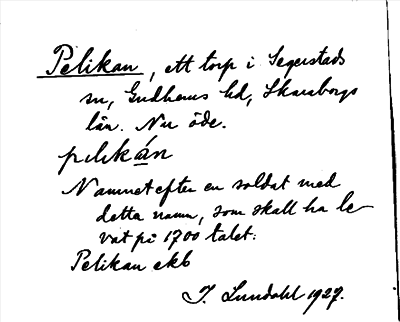 Pelikan, ett torp i Segerstads
sn, Gudhems hd, Skaraborgs
län. Nu öde.
pelikán
Namnet efter en soldat med
detta namn, som skall ha le-
vat på 1700 talet.
Pelikan ekb
I. Lundahl 1927.